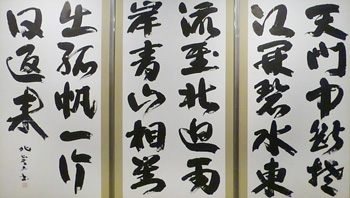 天門中断楚
江開碧水東
流至此迴兩
岸青山相對
出孤帆一片
日邊来